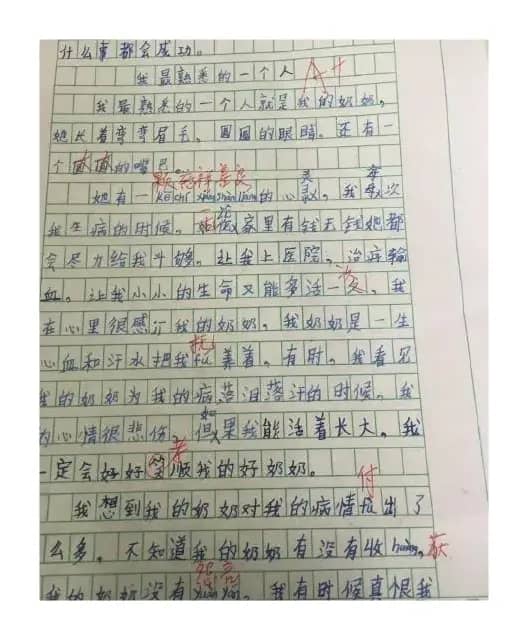 什么事都会成功。
我最熟悉的一个人 A+
我最熟悉的一个人就是我的奶奶，
她长着弯弯眉毛，圆圆的眼睛。还有一
个 的嘴巴。
颗 慈祥善良 灵 每
她有一kē cí xiáng shàn liáng的心 ，我 次
我生病的时候。 家里有钱无钱她都
会尽力给我斗够。让我上医院，治病输
次
血。让我小小的生命又能多活一 。我
在心里很感 我的奶奶。我奶奶是一生
抚
心血和汗水把我fǔ养着。有时。我看见
我的奶奶为我的病落泪落汗的时候。我
如
为心情很悲伤、但果我能活着长大。我
孝
一定会好好笑顺我的好奶奶。
付
我想到我的奶奶对我的病情fù出了
么多。不知道我的奶奶有没有收huò。获
我的奶奶没有 。我有时候真恨我